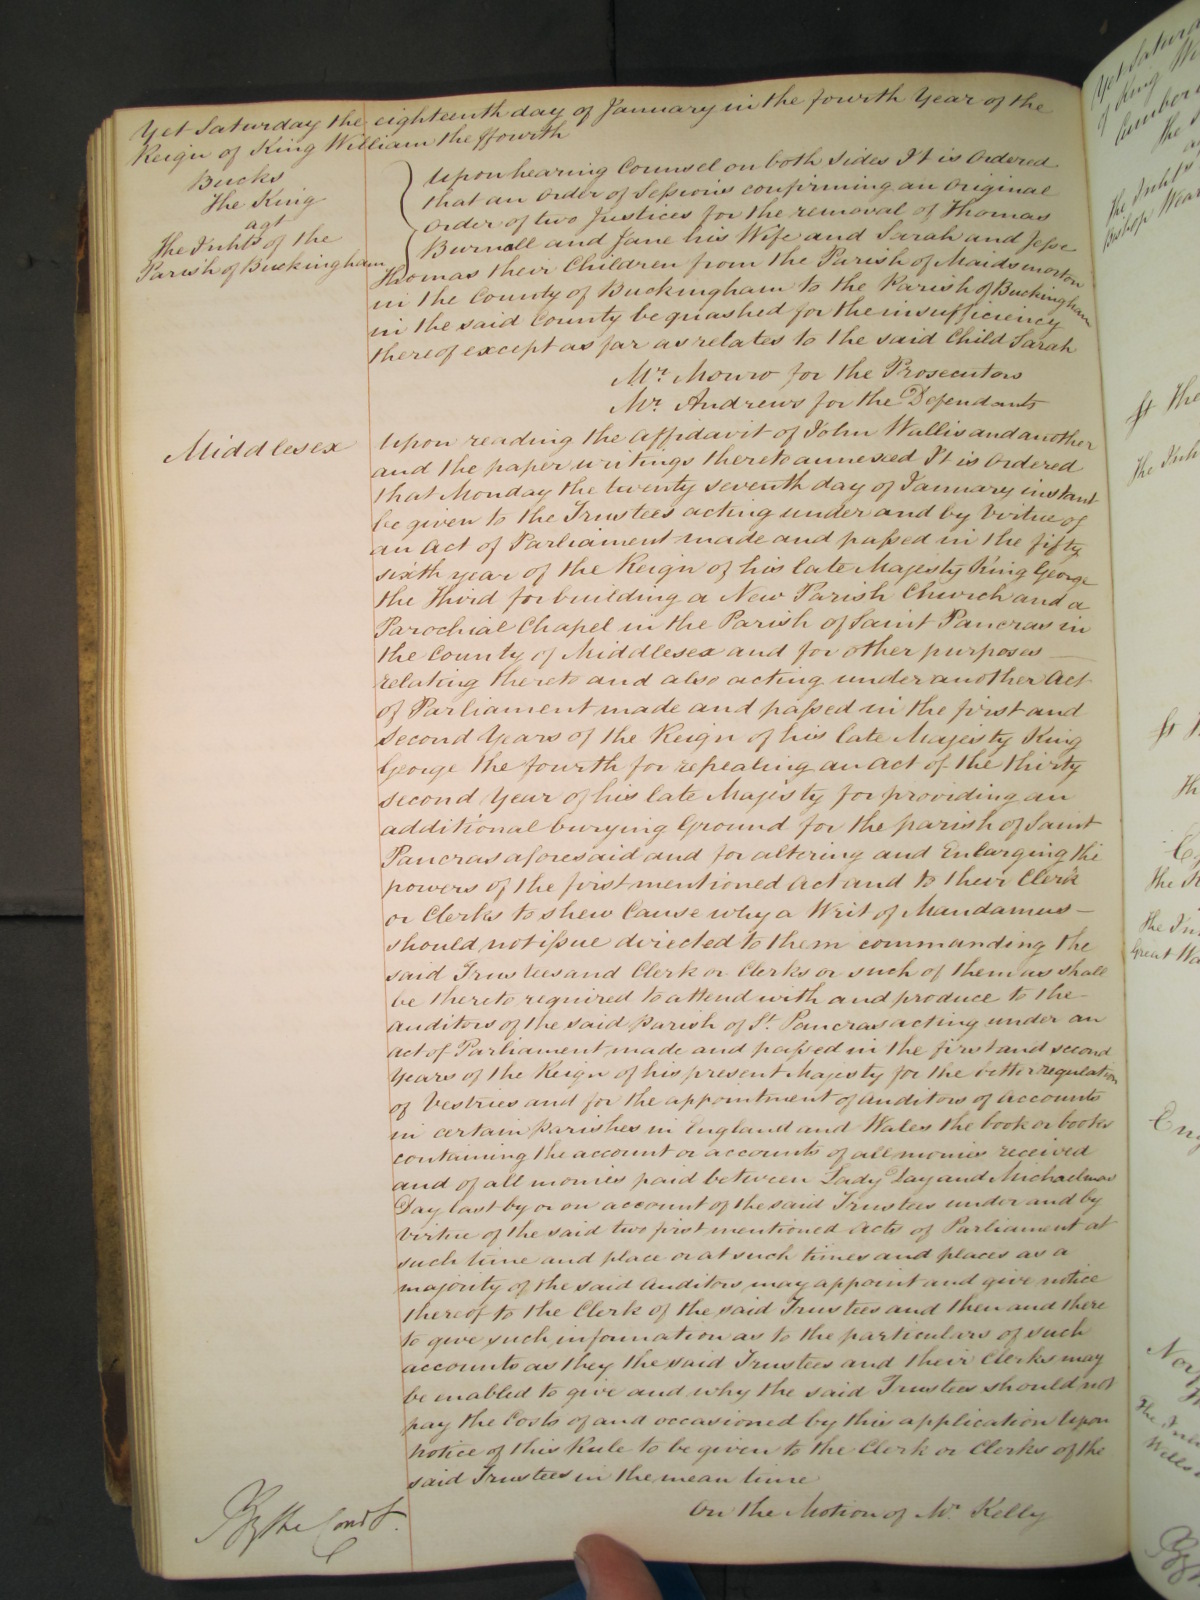 Yet Saturday the eighteenth day of January in the fourth Year of the
Reign of King William the ffourth
Bucks
The King
agt
The Inhts of the
Parish of Buckingham
Upon hearing Counsel on both sides It is Ordered
that an Order of Sessions confirming an Original
Order of two Justices for the removal of Thomas
Burnell and Jane his Wife and Sarah and Jesse
Thomas their Children from the Parish of Maidsmorton
in the County of Buckingham to the Parish of Buckingham
in the said County be quashed for the insufficiency
thereof except as far as relates to the said Child Sarah
Mr. Monro for the Prosecutors
Mr. Andrews for the Defendants
Middlesex
Upon reading the affidavit of John Wallis and another
and the paper writings thereto annexed It is Ordered
that Monday the twenty seventh day of January instant
be given to the Trustees acting under and by Virtue of
an Act of Parliament made and passed in the fifty
sixth year of the Reign of his late Majesty King George
the Third for building a New Parish Church and a
Parochial Chapel in the Parish of Saint Pancras in
the County of Middlesex and for other purposes
relating thereto and also acting under another Act
of Parliament made and passed in the first and
Second Years of the Reign of his late Majesty King
George the fourth for repealing an Act of the thirty
second Year of his late Majesty for providing an
additional burying Ground for the parish of Saint
Pancras aforesaid and for altering and Enlarging the
powers of the first mentioned Act and to their Clerk
or Clerks to shew Cause why a Writ of Mandamus
should not issue directed to them commanding the
said Trustees and Clerk or Clerks or such of them as shall
be thereto required to attend with and produce to the
auditors of the said parish of St. Pancras acting under an
Act of Parliament made and passed in the first and second
Years of the Reign of his present Majesty for the better regulation
of Vestries and for the appointment of auditors of accounts
in certain Parishes in England and Wales the book or books
containing the account or accounts of all monies received
and of all monies paid between Lady Day and Michaelmas
Day last by or on account of the said Trustees under and by
virtue of the said two first mentioned Acts of Parliament at
such time and place or at such times and places as a
majority of the said auditors may appoint and give notice
thereof to the Clerk of the said Trustees and then and there
to give such information as to the particulars of such
accounts as they the said Trustees and their Clerks may
be enabled to give and why the said Trustees should not
pay the Costs of and occasioned by this application Upon
notice of this Rule to be given to the Clerk or Clerks of the
said Trustees in the mean time
On the Motion of Mr. Kelly
By the Court.